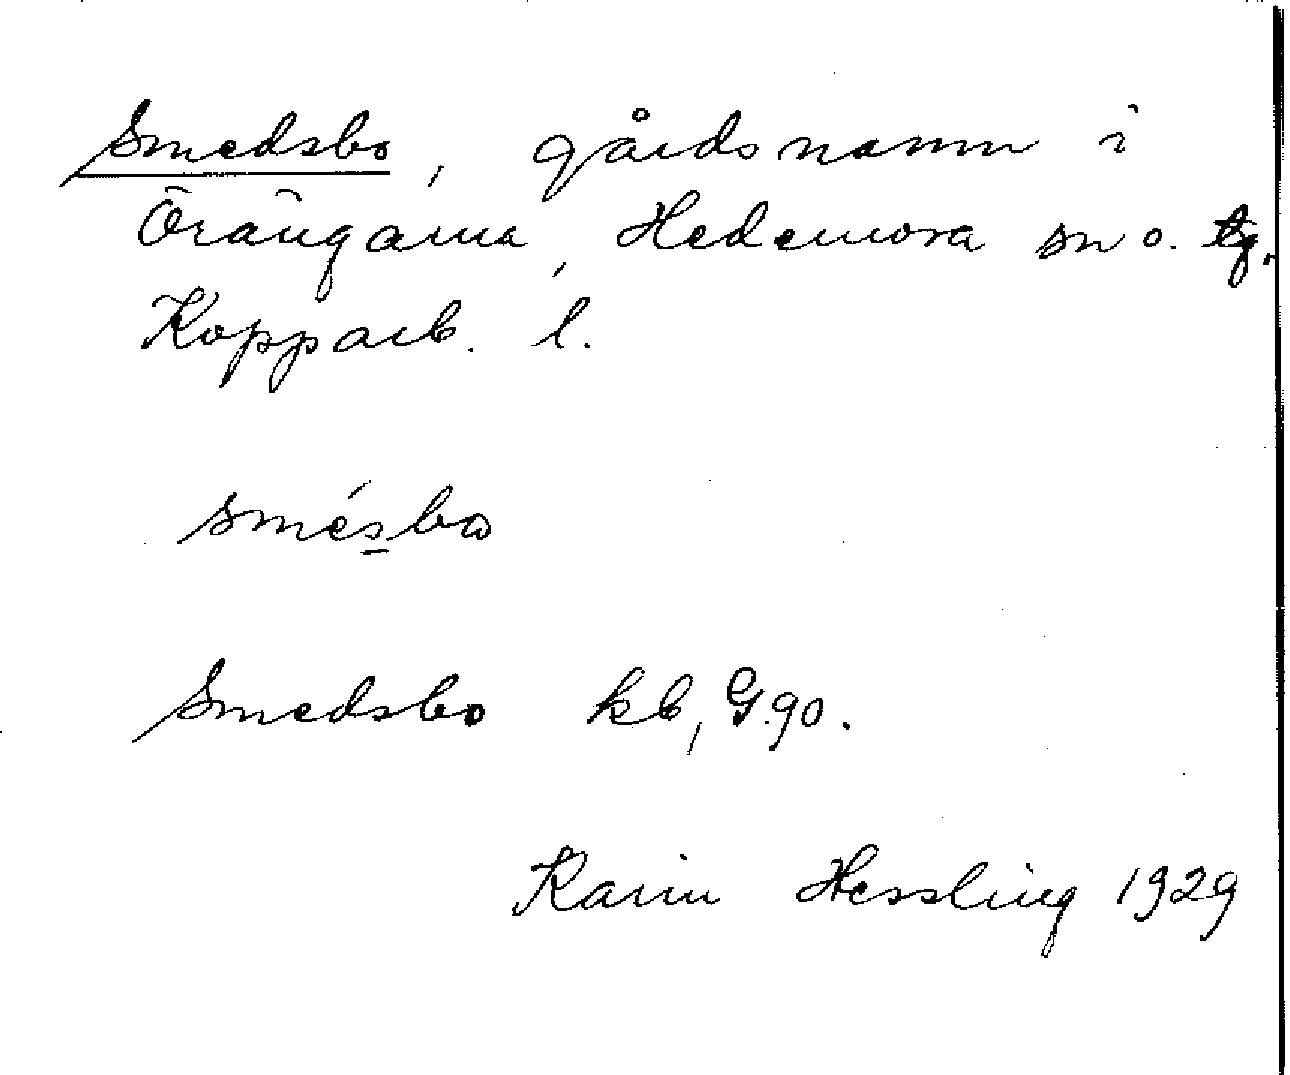 Smedsbo, gårdsnamn i
Örängarna, Hedemora sn o. tg.
Kopparb. l.
smésbω
Smedsbo kb, G.90.
Karin Hessling 1929